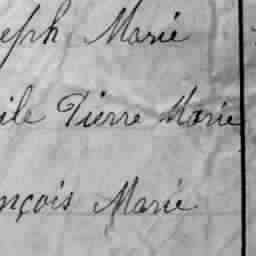 eph Marie
ile Pierre Marie
nçois Marie